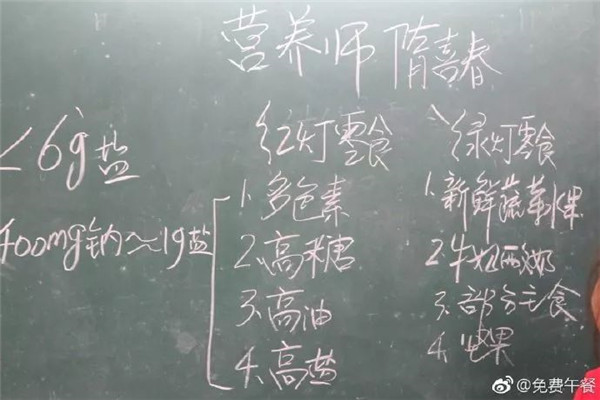 营养师 隋喜春
<6g盐
400mg钠≈1g盐
红灯零食
1.多色素
2.高糖
3.高油
4.高盐
绿灯零食
1.新鲜蔬菜水果
2.牛奶酸奶
3.部分主食
4.坚果
@免费午餐